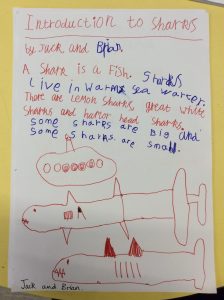 Introduction to Sharks
by Jack and Brian
A Shark is a Fish. Sharks
live in warm sea warter.
Thar are lemon Sharks, great white
Sharks and hamor head Sharks.
Some sharks are big and
Some sharks are small.
Jack and Brian